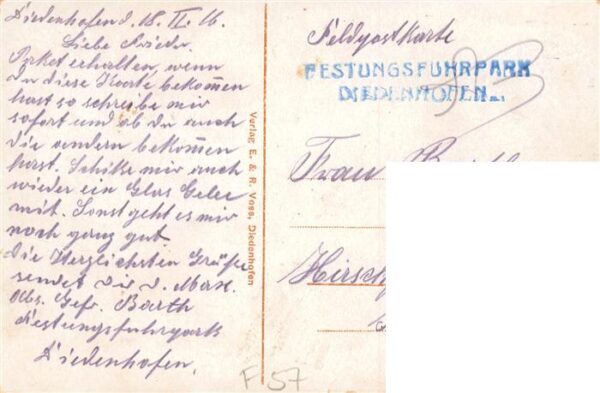 Diedenhofen d. 18. II. 16.
Liebe Frieda.
Paket erhalten, wenn
du diese Karte bekommen
hast so schreibe mir
sofort und ob du auch
die andern bekommen
hast. Schike mir auch
wieder ein Glas Gelee
mit. Sonst geht es mir
noch ganz gut.
Die Herzlichsten Grüße
sendet Dir d. Max.
Abs. Gefr. Barth
Festungsfuhrpark
Diedenhofen.
Verlag E. & R. Voss, Diedenhofen
Feldpostkarte
FESTUNGSFUHRPARK
DIEDENHOFEN
Frau
Hirsch
F 57